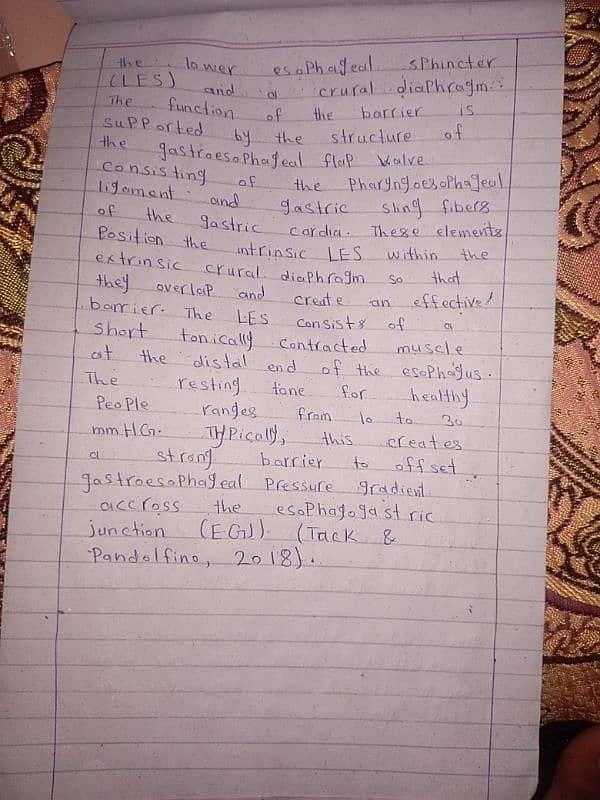 the lower esophageal sphincter
(LES) and a crural diaphragm.
The function of the barrier is
supported by the structure of
the gastroesophageal flap valve
consisting of the Pharyngoesophageal
ligament and gastric sling fibers
of the gastric cardia. These elements
Position the intrinsic LES within the
extrinsic crural diaphragm so that
they overlap and create an effective
barrier. The LES consists of a
short tonically contracted muscle
at the distal end of the esophagus.
The resting tone for healthy
People ranges from 10 to 30
mmHG. Typically, this creates
a strong barrier to offset
gastroesophageal Pressure gradient
accross the esophagogastric
junction (EGJ). (Tack &
Pandolfino, 2018).